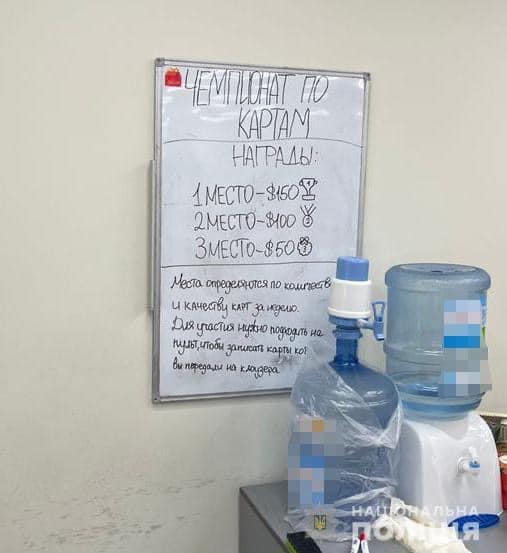 ЧЕМПИОНАТ ПО
КАРТАМ
НАГРАДЫ:
1 МЕСТО-$150
2 МЕСТО-$100
3 МЕСТО-$50
Места определяются по количеству
и качеству карт за неделю.
Для участия нужно подходить на
пульт, чтобы записать карты кот
вы передали на клоузера
НАЦІОНАЛЬНА
ПОЛІЦІЯ